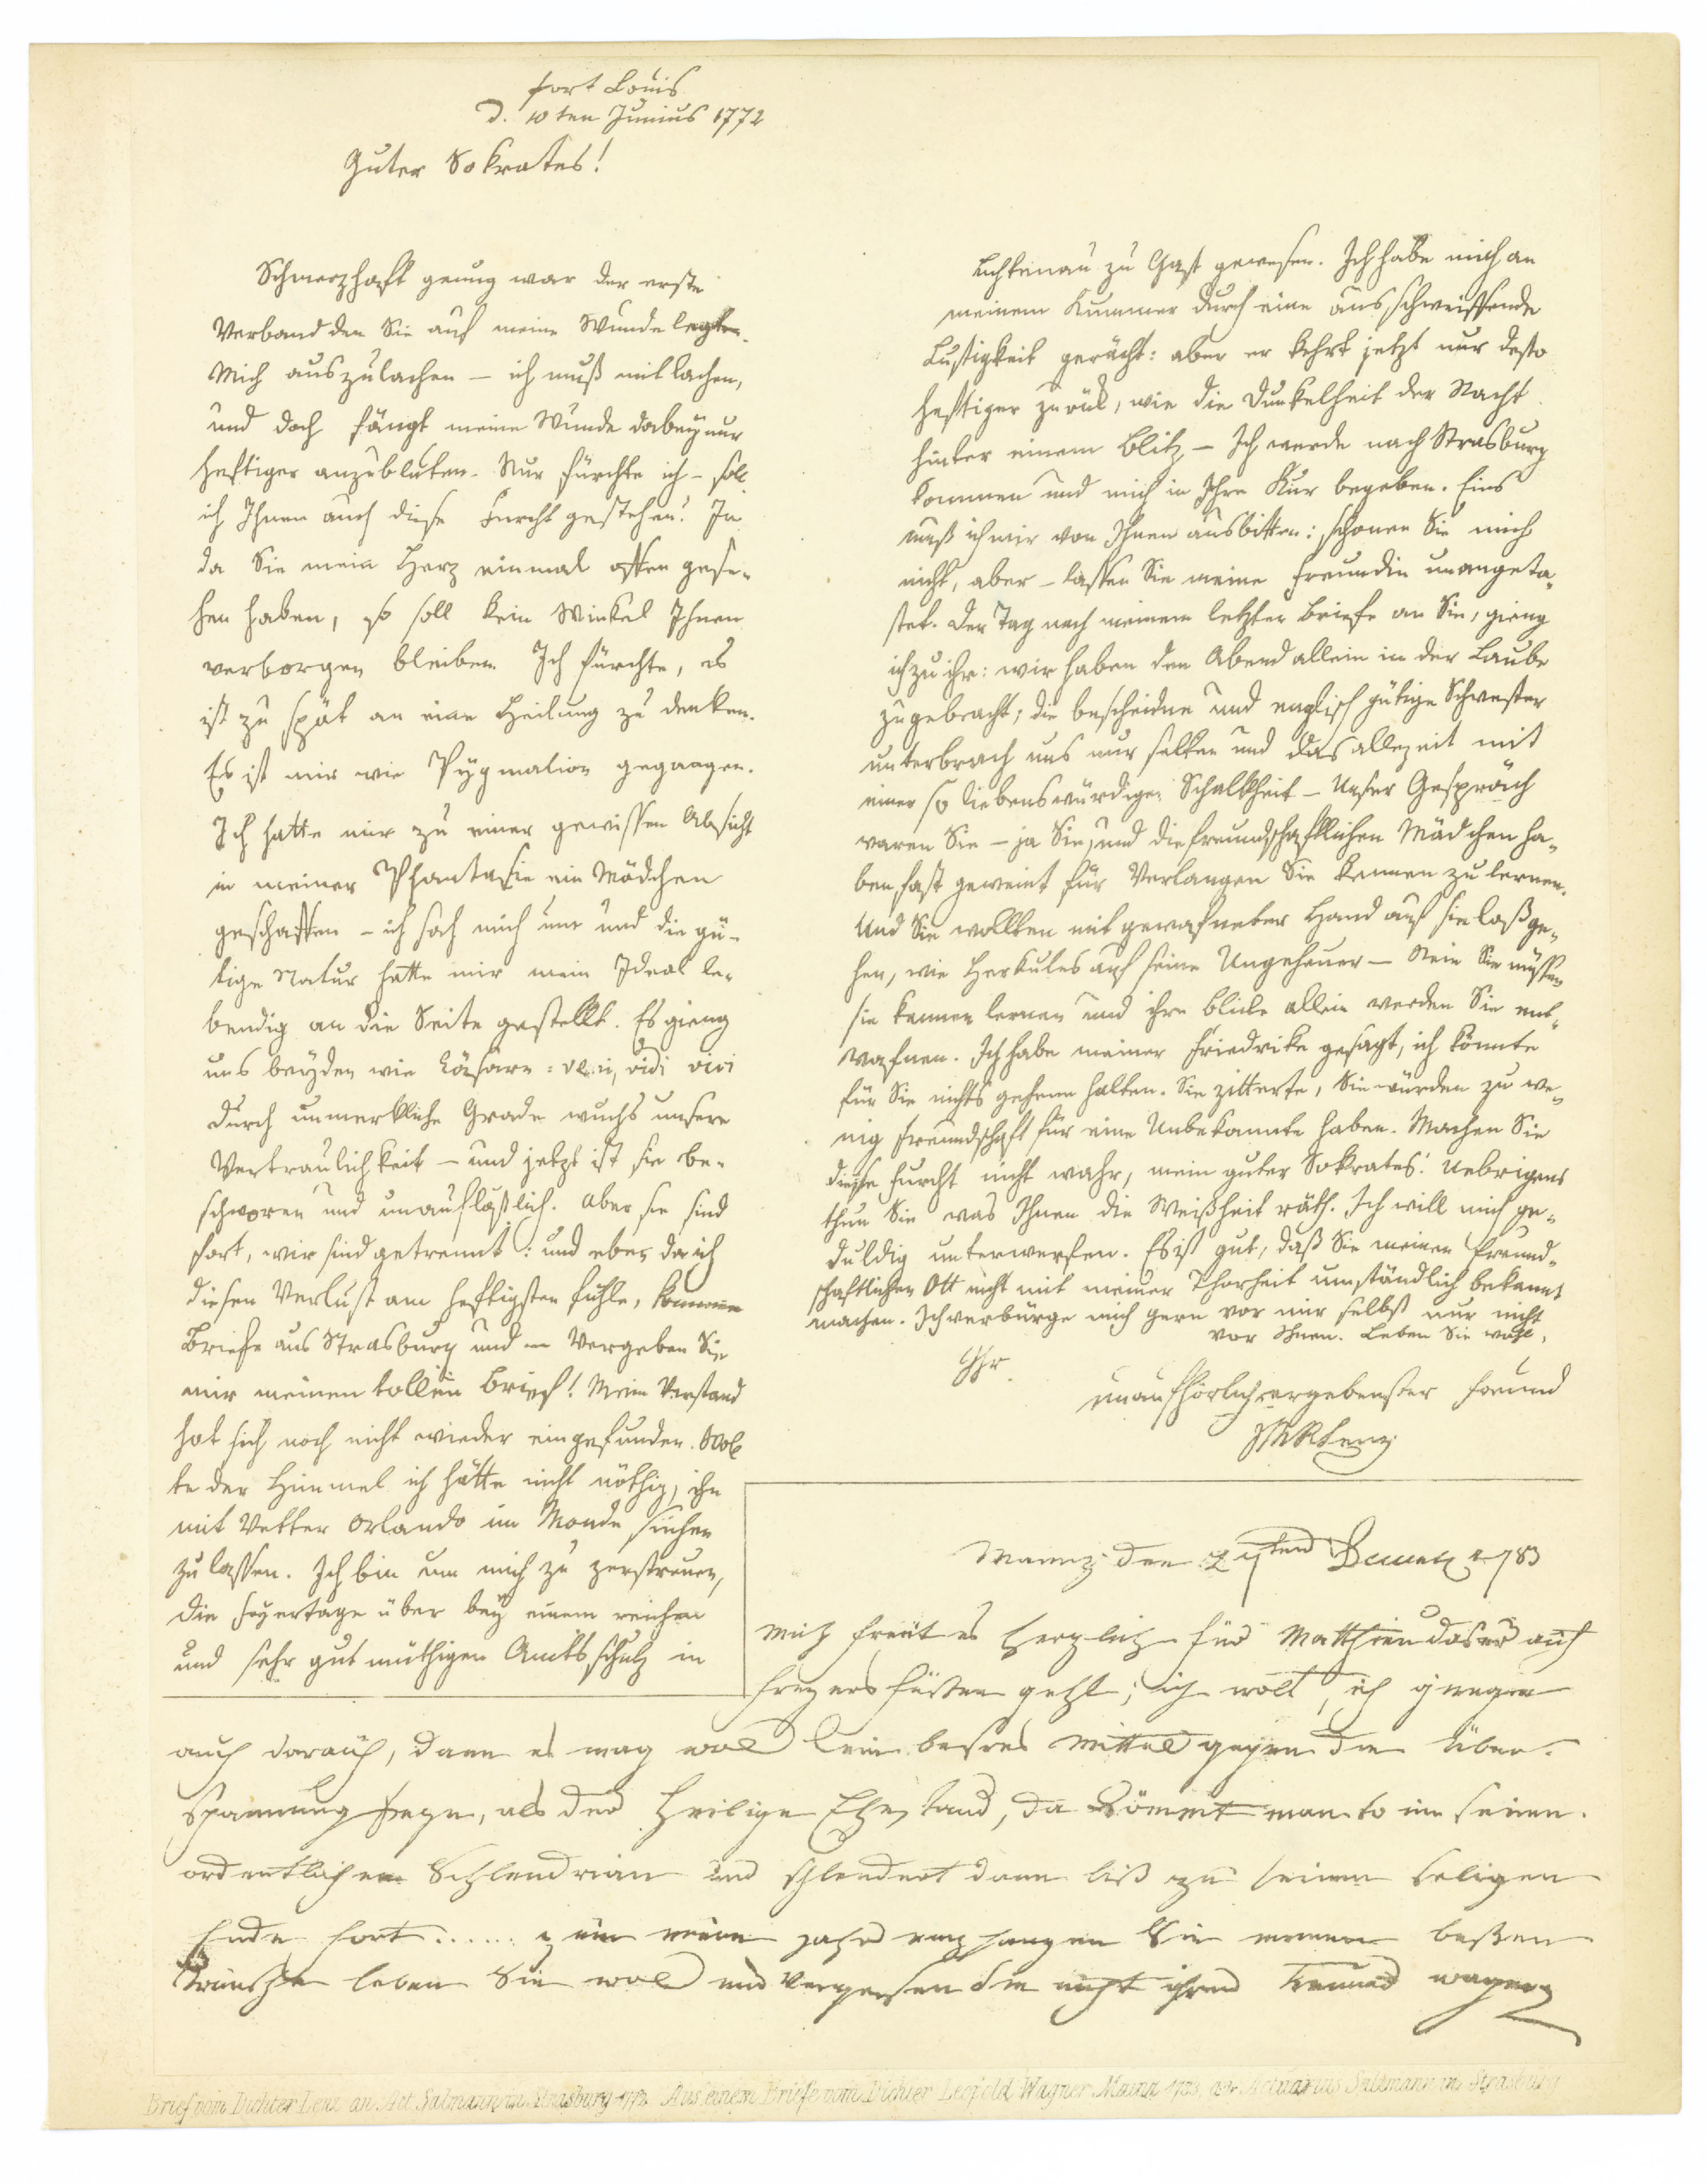 fort Louis
d. 10ten Junius 1772
Guter Sokrates!
Schmerzhaft genug war der erste
Verband den Sie auf meine Wunde legten.
Mich auszulachen — ich muß mit lachen,
und doch fängt meine Wunde dabey nur
heftiger an zu bluten. Nur fürchte ich — soll
ich Ihnen auch diese Furcht gestehen? Ja
da Sie mein Herz einmal offen gese-
hen haben, so soll kein Winkel Ihnen
verborgen bleiben. Ich fürchte, es
ist zu spät an eine Heilung zu denken.
Es ist mir wie Pygmalion gegangen.
Ich hatte mir zu einer gewissen Absicht
in meiner Phantasie ein Mädchen
geschaffen — ich sah mich um und die gü-
tige Natur hatte mir mein Ideal le-
bendig an die Seite gestellt. Es gieng
uns beyden wie Cäsarn: veni, vidi vici
Durch unmerkliche Grade wuchs unsere
Vertraulichkeit — und jetzt ist sie be-
schworen und unauflößlich. Aber sie sind
fort, wir sind getrennt: und eben da ich
diesen Verlust am heftigsten fühle, kommen
Briefe aus Strasburg und — Vergeben Sie
mir meinen tollen Brief! Mein Verstand
hat sich noch nicht wieder eingefunden. Wol
te der Himmel ich hätte nicht nöthig, ihn
mit Vetter Orlando im Monde suchen
zu lassen. Ich bin um mich zu zerstreuen,
die Feyertage über bey einem reichen
und sehr gutmüthigen Amtsschulz in
Lichtenau zu Gast gewesen. Ich habe mich an
meinem Kummer durch eine ausschweiffende
Lustigkeit gerächt: aber er kehrt jetzt nur desto
heftiger zurück, wie die Dunkelheit der Nacht
hinter einem Blitz — Ich werde nach Strasburg
kommen und mich in Ihre Kur begeben. Eins
muß ich mir von Ihnen ausbitten: schonen Sie mich
nicht, aber — lassen Sie meine Freundin unangeta-
stet. Der Tag nach meinem letzten Briefe an Sie, gieng
ich zu ihr: wir haben den Abend allein in der Laube
zugebracht; die bescheidne und englisch gütige Schwester
unterbrach uns nur selten und das allezeit mit
einer so liebenswürdigen Schalkheit — Unser Gespräch
waren Sie — ja Sie, und die freundschaftlichen Mädchen ha-
ben fast geweint für Verlangen Sie kennen zu lernen.
Und Sie wollten mit gewafneter Hand auf sie loß ge-
hen, wie Herkules auf seine Ungeheuer — Nein Sie müssen
sie kennen lernen und ihre Blicke allein werden Sie ent-
wafnen. Ich habe meiner Friedrike gesagt, ich könnte
für Sie nichts geheim halten. Sie zitterte, Sie würden zu we-
nig Freundschaft für eine Unbekannte haben. Machen Sie
diese Furcht nicht wahr, mein guter Sokrates! Uebrigens
thun Sie was Ihnen die Weißheit räth. Ich will mich ge-
duldig unterwerfen. Es ist gut, daß Sie meinen freund-
schaftlichen Ott nicht mit meiner Thorheit umständlich bekannt
machen. Ich verbürge mich gern vor mir selbst nur nicht
vor Ihnen. Leben Sie wohl,
Ihr
unaufhörlich ergebenster Freund
JMRLenz
Maynz den 1783
Mich freut es herzlich für Matthieu das er auch
freyers füßen geht; ich wolt, ich gienge
auch darauf, denn es mag wol kein bessres Mittel gegen die Über-
spannung seyn, als der Heilige Ehestand, da kömmt man so in seinen
ordentlichen Schlendrian und schlendert dann biß zu seinem seligen
Ende fort ...... zum neuen Jahr empfangen Sie meinen besten
Wünsche leben Sie wol und Vergessen Sie nicht ihren Freund Wagner
Brief vom Dichter Lenz an Act. Salzmann in Strasburg 1772. Aus einem Briefe vom Dichter Leopold Wagner Mainz 1783, an Actuarius Salzmann in Strasburg